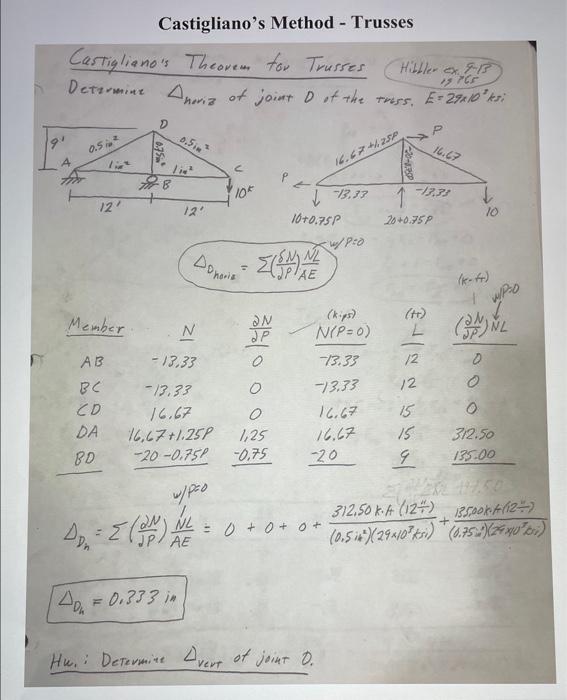 Castigliano's Method - Trusses
Castigliano's Theorem for Trusses
Hibbler ex. 9-13
pg 765
Determine Δhoriz of joint D of the truss. E=29x10³ksi
9'
D
0.5in²
0.5in²
0.75in²
A
1in²
1in²
C
B
10K
12'
12'
P
16.67+1.25P
16.67
-20-0.75P
P
-13.33
-13.33
10+0.75P
20+0.75P
10
ΔDhoriz = Σ(∂N/∂P) NL/AE
w/P=0
(k-ft)
w/P=0
(kips)
(ft)
Member N ∂N/∂P N(P=0) L (∂N/∂P) NL
AB -13.33 0 -13.33 12 0
BC -13.33 0 -13.33 12 0
CD 16.67 0 16.67 15 0
DA 16.67+1.25P 1.25 16.67 15 312.50
BD -20-0.75P -0.75 -20 9 135.00
w/P=0
ΔDh = Σ(∂N/∂P) NL/AE = 0 + 0 + 0 + 312.50 k·ft (12"/')/(0.5in²)(29x10³ksi) + 135.00k·ft(12"/')/(0.75in²)(29x10³ksi)
ΔDh = 0.333 in
Hw.: Determine Δvert of joint D.